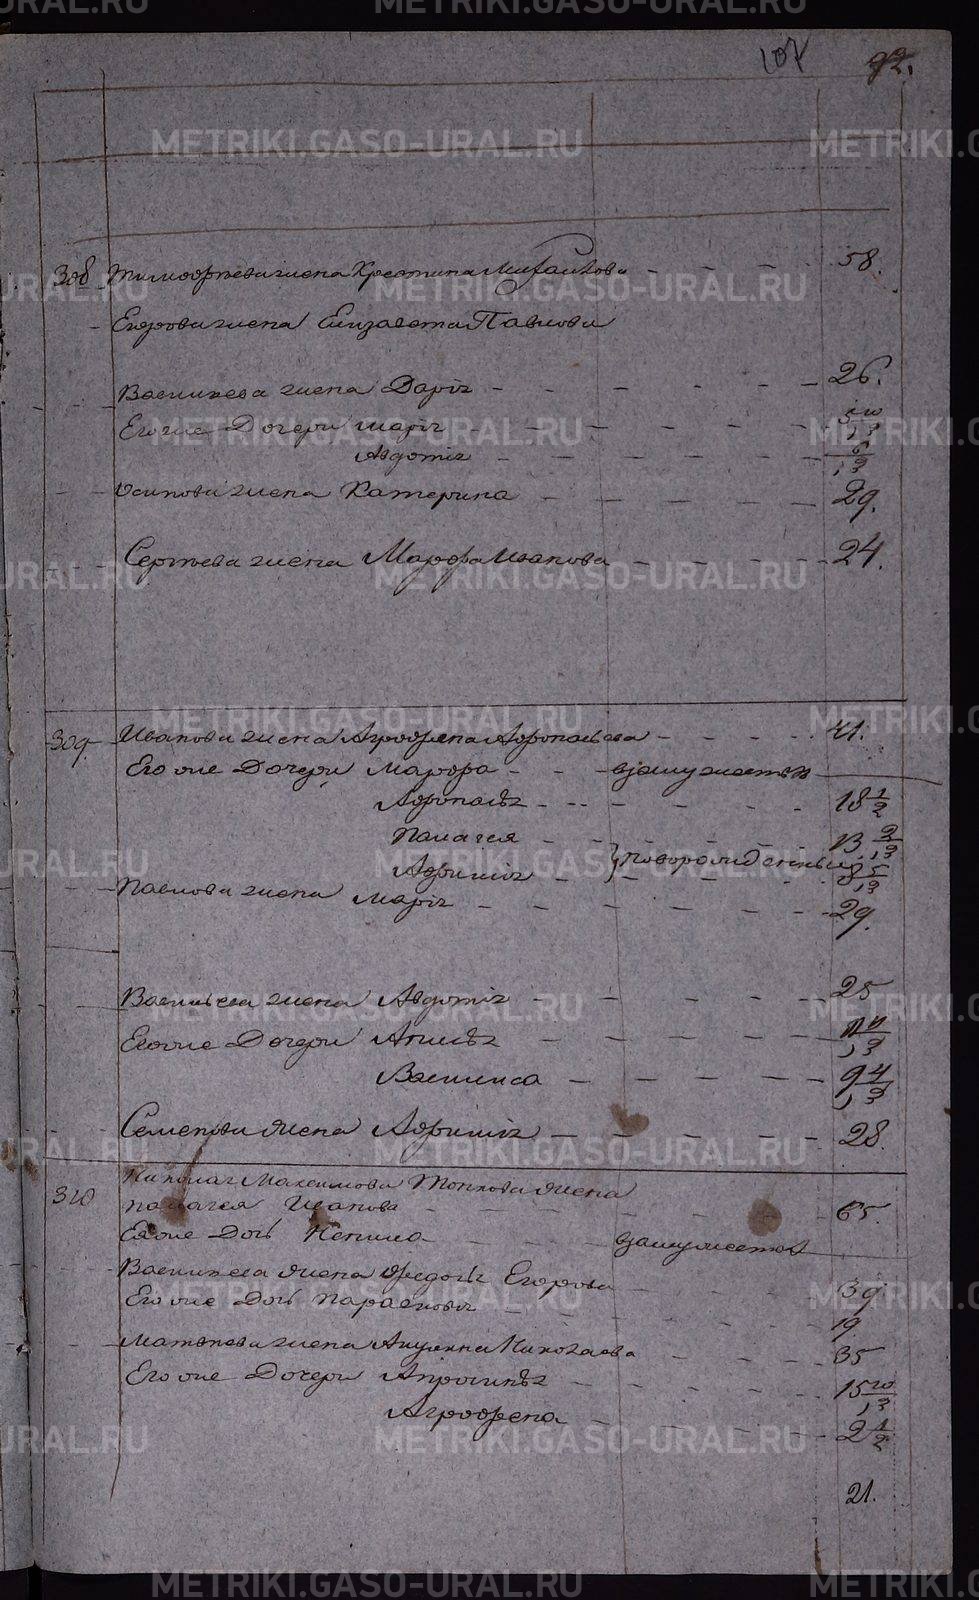 107 92.
308 Тимофеева жена Крестина Михайлова 58.
Егорова жена Елизавета Павлова
Васильева жена Дарья 26.
Его же Дочери Марья 5 10/13
Авдотья 6/13
Осипова жена Катерина 29.
Сергеева жена Марфа Иванова 24.
309 Иванова жена Аграфена Афонасьева 41.
Его же Дочери Марфа взамужестве
Афонасья 18 1/2
Палагея 13 2/13
Афимья новорожденныя 5/13
Павлова жена Марья 29.
Васильева жена Авдотья 25
Его же Дочери Анисья 11/13
Василиса 9 4/13
Семенова жена Афимья 28.
310 Николая Максимова жена
палагея Иванова 65.
Его же Дочь Ненила взамужестве
Васильева жена Федосья Егорова 39
Его же Дочь Парасковья 19.
Матвеева жена Акулина Николаева 35
Его же Дочери Апросинья 15 10/13
Аграфена 2 1/2
21.
METRIKI.GASO-URAL.RU